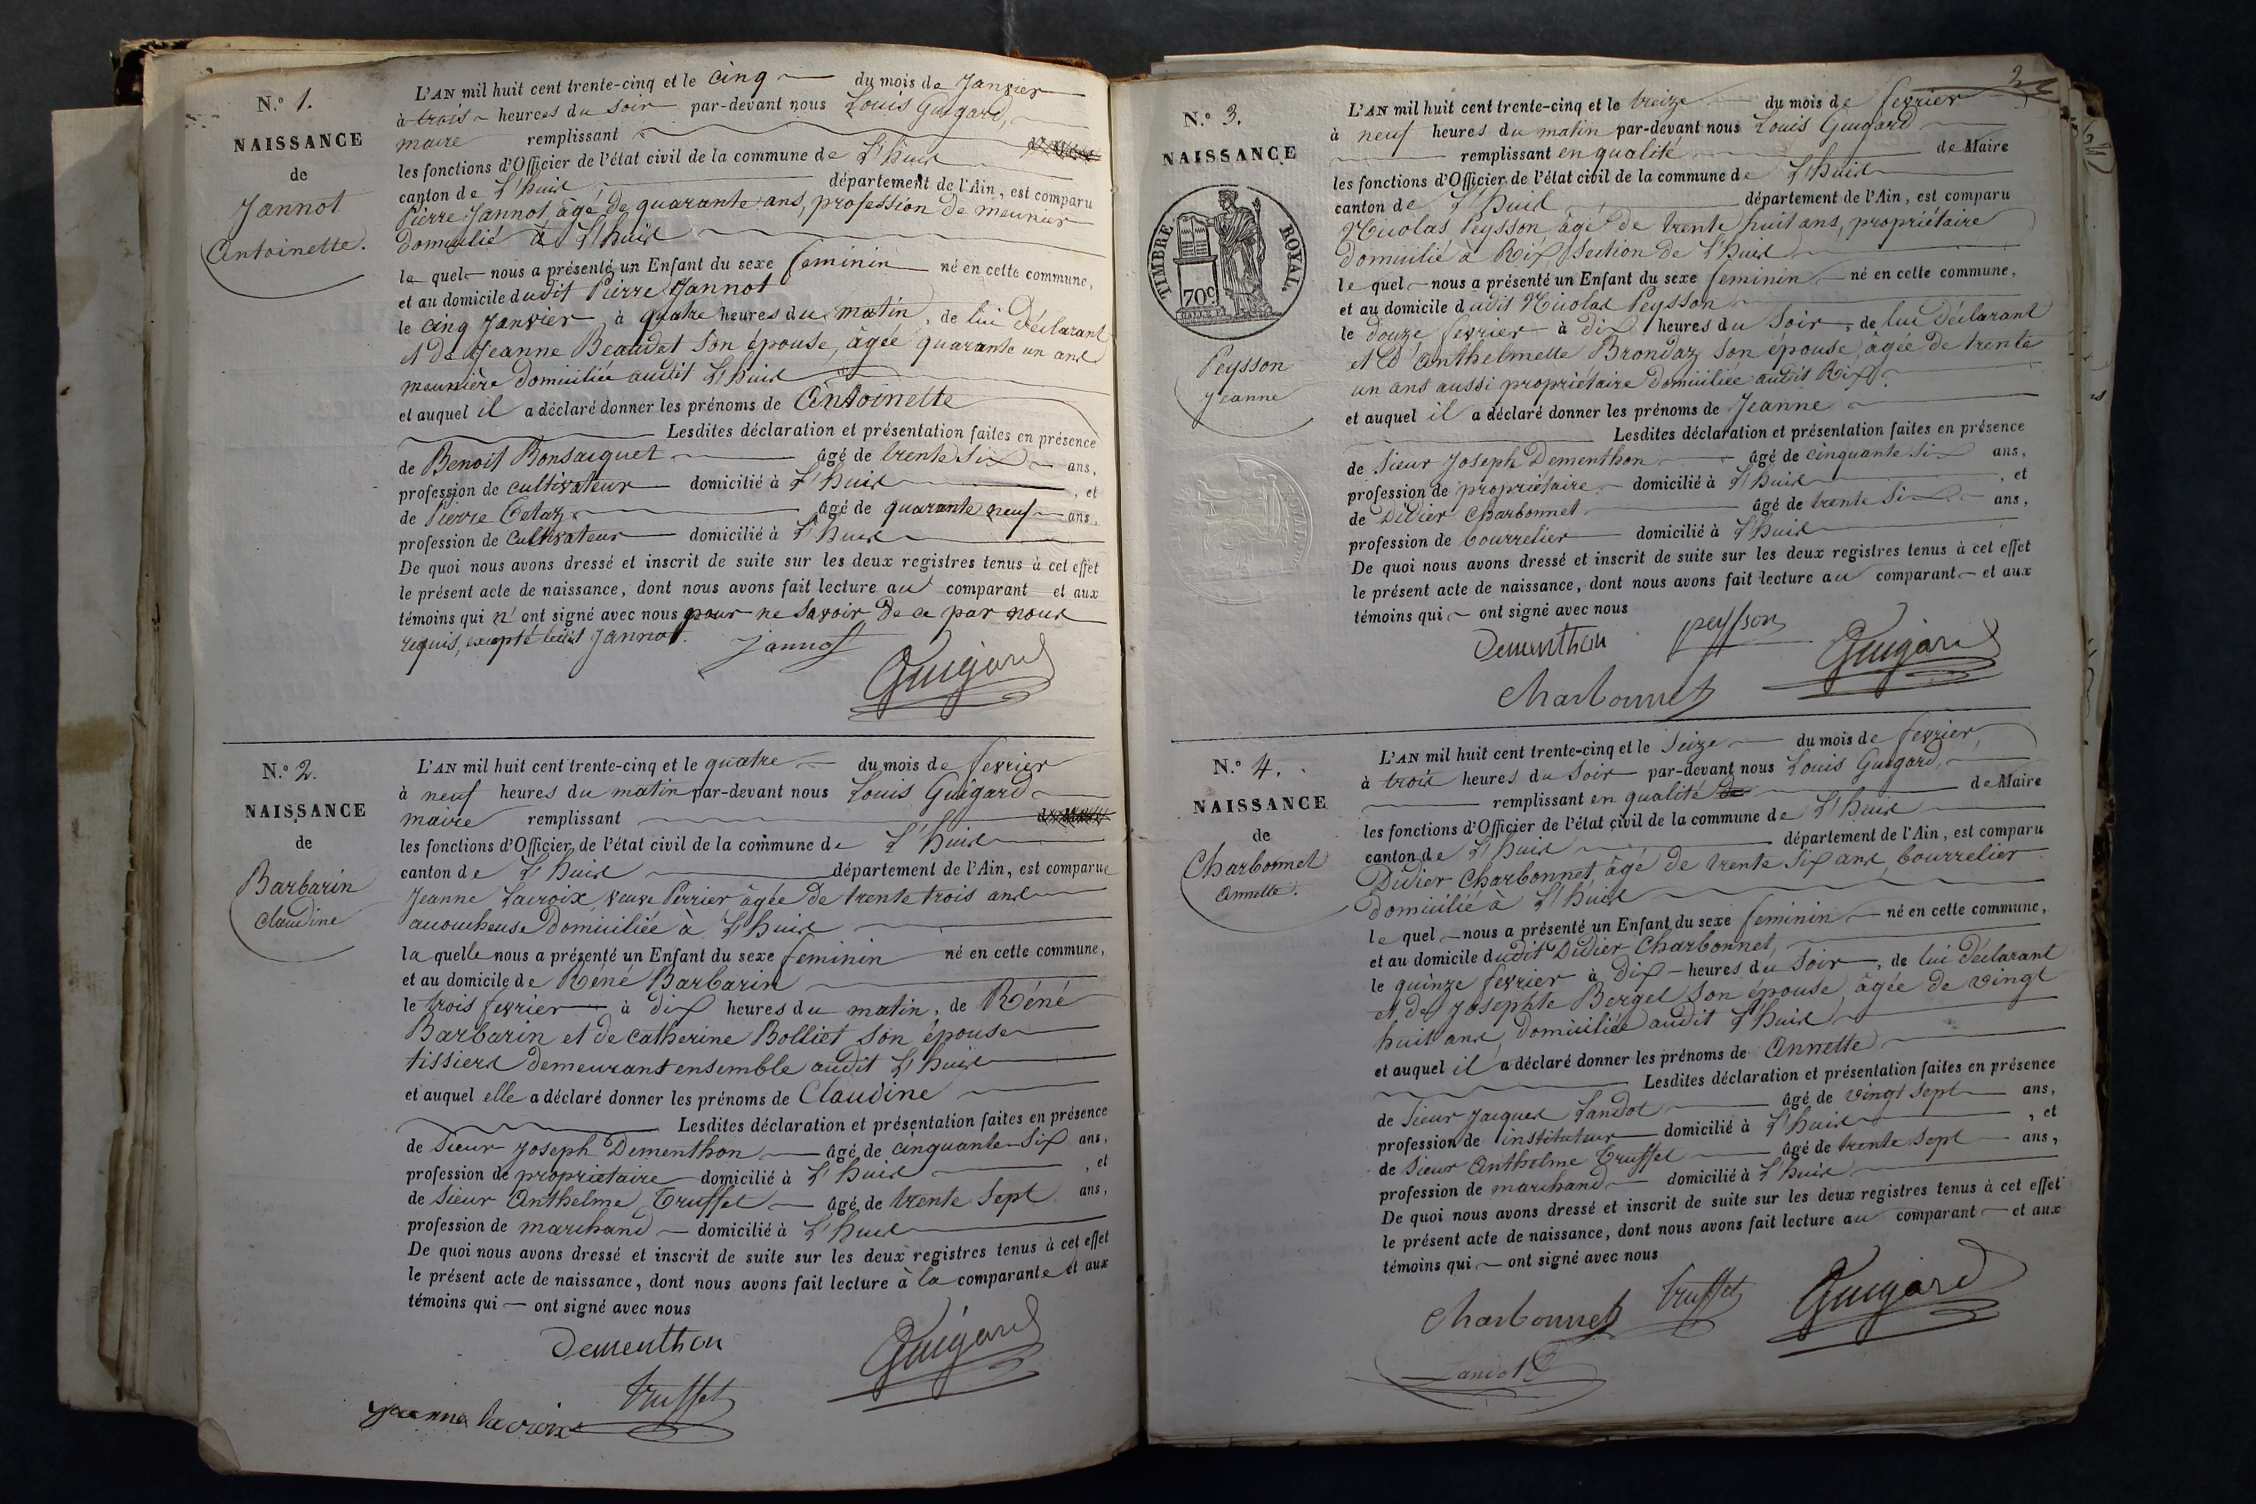 N.º 1.
NAISSANCE
de
Jannot
Antoinette.
L'AN mil huit cent trente-cinq et le cinq du mois de Janvier
à trois heures du soir par-devant nous Louis Guigard,
maire remplissant
les fonctions d'Officier de l'état civil de la commune de L'huis
canton de L'huis département de l'Ain, est comparu
Pierre Jannot, âgé de quarante ans, profession de meunier
domicilié à L'huis
le quel nous a présenté un Enfant du sexe feminin né en cette commune,
et au domicile dudit Pierre Jannot
le cinq Janvier à quatre heures du matin, de lui déclarant
et de Jeanne Beaudet son épouse, âgée quarante un ans
meunière domiciliée audit L'huis
et auquel il a déclaré donner les prénoms de Antoinette
Lesdites déclaration et présentation faites en présence
de Benoit Bonsacquet âgé de trente six ans,
profession de cultivateur domicilié à L'huis , et
de Pierre Cetaz âgé de quarante neuf ans,
profession de cultivateur domicilié à L'huis
De quoi nous avons dressé et inscrit de suite sur les deux registres tenus à cet effet
le présent acte de naissance, dont nous avons fait lecture au comparant et aux
témoins qui n'ont signé avec nous pour ne savoir de ce par nous
requis, excepté ledit Jannot.
Jannot
Guigard
N.º 2.
NAISSANCE
de
Barbarin
Claudine
L'AN mil huit cent trente-cinq et le quatre du mois de fevrier
à neuf heures du matin par-devant nous Louis Guigard
maire remplissant
les fonctions d'Officier de l'état civil de la commune de L'huis
canton de L'huis département de l'Ain, est comparue
Jeanne Lacroix, veuve Perrier âgée de trente trois ans
accoucheuse domiciliée à L'huis
la quelle nous a présenté un Enfant du sexe feminin né en cette commune,
et au domicile de Réné Barbarin
le trois fevrier à dix heures du matin, de Réné
Barbarin et de Catherine Bolliet son épouse
tissiers demeurant ensemble audit L'huis
et auquel elle a déclaré donner les prénoms de Claudine
Lesdites déclaration et présentation faites en présence
de Sieur Joseph Dementhon âgé de cinquante six ans,
profession de propriétaire domicilié à L'huis , et
de Sieur Anthelme Truffet âgé de trente sept ans,
profession de marchand domicilié à L'huis
De quoi nous avons dressé et inscrit de suite sur les deux registres tenus à cet effet
le présent acte de naissance, dont nous avons fait lecture à la comparante et aux
témoins qui ont signé avec nous
Dementhon
Guigard
Truffet
jeanne lacroix
2
N.º 3.
NAISSANCE
TIMBRE ROYAL.
70c
Peysson
Jeanne
L'AN mil huit cent trente-cinq et le treize du mois de fevrier
à neuf heures du matin par-devant nous Louis Guigard
remplissant en qualité de Maire
les fonctions d'Officier de l'état civil de la commune de L'huis
canton de L'huis département de l'Ain, est comparu
Nicolas Peysson, âgé de trente huit ans, propriétaire
domicilié à Rix, section de L'huis
le quel nous a présenté un Enfant du sexe feminin né en cette commune,
et au domicile dudit Nicolas Peysson
le douze fevrier à dix heures du soir, de lui déclarant
et d'Anthelmette Brondaz son épouse, âgée de trente
un ans aussi propriétaire domiciliée audit Rix.
et auquel il a déclaré donner les prénoms de Jeanne
Lesdites déclaration et présentation faites en présence
de Sieur Joseph Dementhon âgé de cinquante six ans,
profession de propriétaire domicilié à L'huis , et
de Didier Charbonnet âgé de trente six ans,
profession de bourrelier domicilié à L'huis
De quoi nous avons dressé et inscrit de suite sur les deux registres tenus à cet effet
le présent acte de naissance, dont nous avons fait lecture au comparant et aux
témoins qui ont signé avec nous
Dementhon peysson
Guigard
Charbonnet
N.º 4.
NAISSANCE
de
Charbonnet
Annette.
L'AN mil huit cent trente-cinq et le Seize du mois de fevrier
à trois heures du soir par-devant nous Louis Guigard,
remplissant en qualité de Maire
les fonctions d'Officier de l'état civil de la commune de L'huis
canton de L'huis département de l'Ain, est comparu
Didier Charbonnet, âgé de trente six ans, bourrelier
domicilié à L'huis
le quel nous a présenté un Enfant du sexe feminin né en cette commune,
et au domicile dudit Didier Charbonnet,
le quinze fevrier à dix heures du soir, de lui déclarant
et de Josephte Berget son épouse, âgée de vingt
huit ans, domiciliée audit L'huis
et auquel il a déclaré donner les prénoms de Annette
Lesdites déclaration et présentation faites en présence
de Sieur Jacques Landot âgé de vingt sept ans,
profession de instituteur domicilié à L'huis , et
de Sieur Anthelme Truffet âgé de trente sept ans,
profession de marchand domicilié à L'huis
De quoi nous avons dressé et inscrit de suite sur les deux registres tenus à cet effet
le présent acte de naissance, dont nous avons fait lecture au comparant et aux
témoins qui ont signé avec nous
Charbonnet Truffet Guigard
Landot